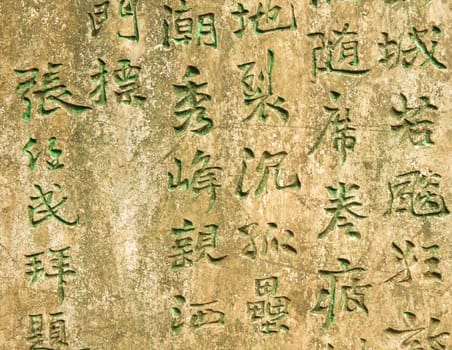 城若飈狂
隨席卷疲
地裂沉孤壘
潮秀峰親洒
門標
張任民拜題